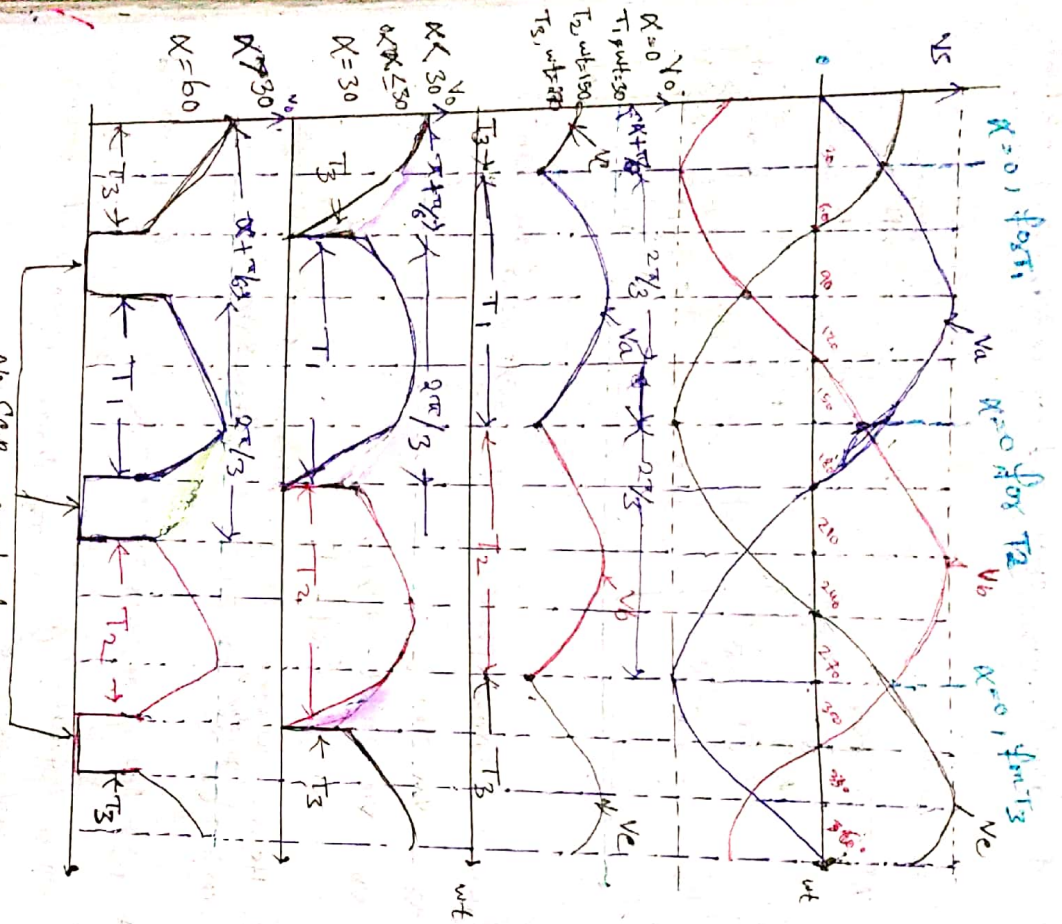 α=0, for T1
α=0 for T2
α=0, for T3
Vs
Va
Vb
Vc
0
30
60
90
120
150
180
210
240
270
30
wt
Vo
α=0
T1, wt=30
T2, wt=150
T3, wt=27
α+π/6
2π/3
2π/3
Vc
Va
Vb
Vc
T3
T1
T2
T3
wt
Vo
α<30
α≤30
α=30
α+π/6
2π/3
T3
T1
T2
T3
Vo
α>30
α=60
α+π/6
2π/3
T3
T1
T2
T3